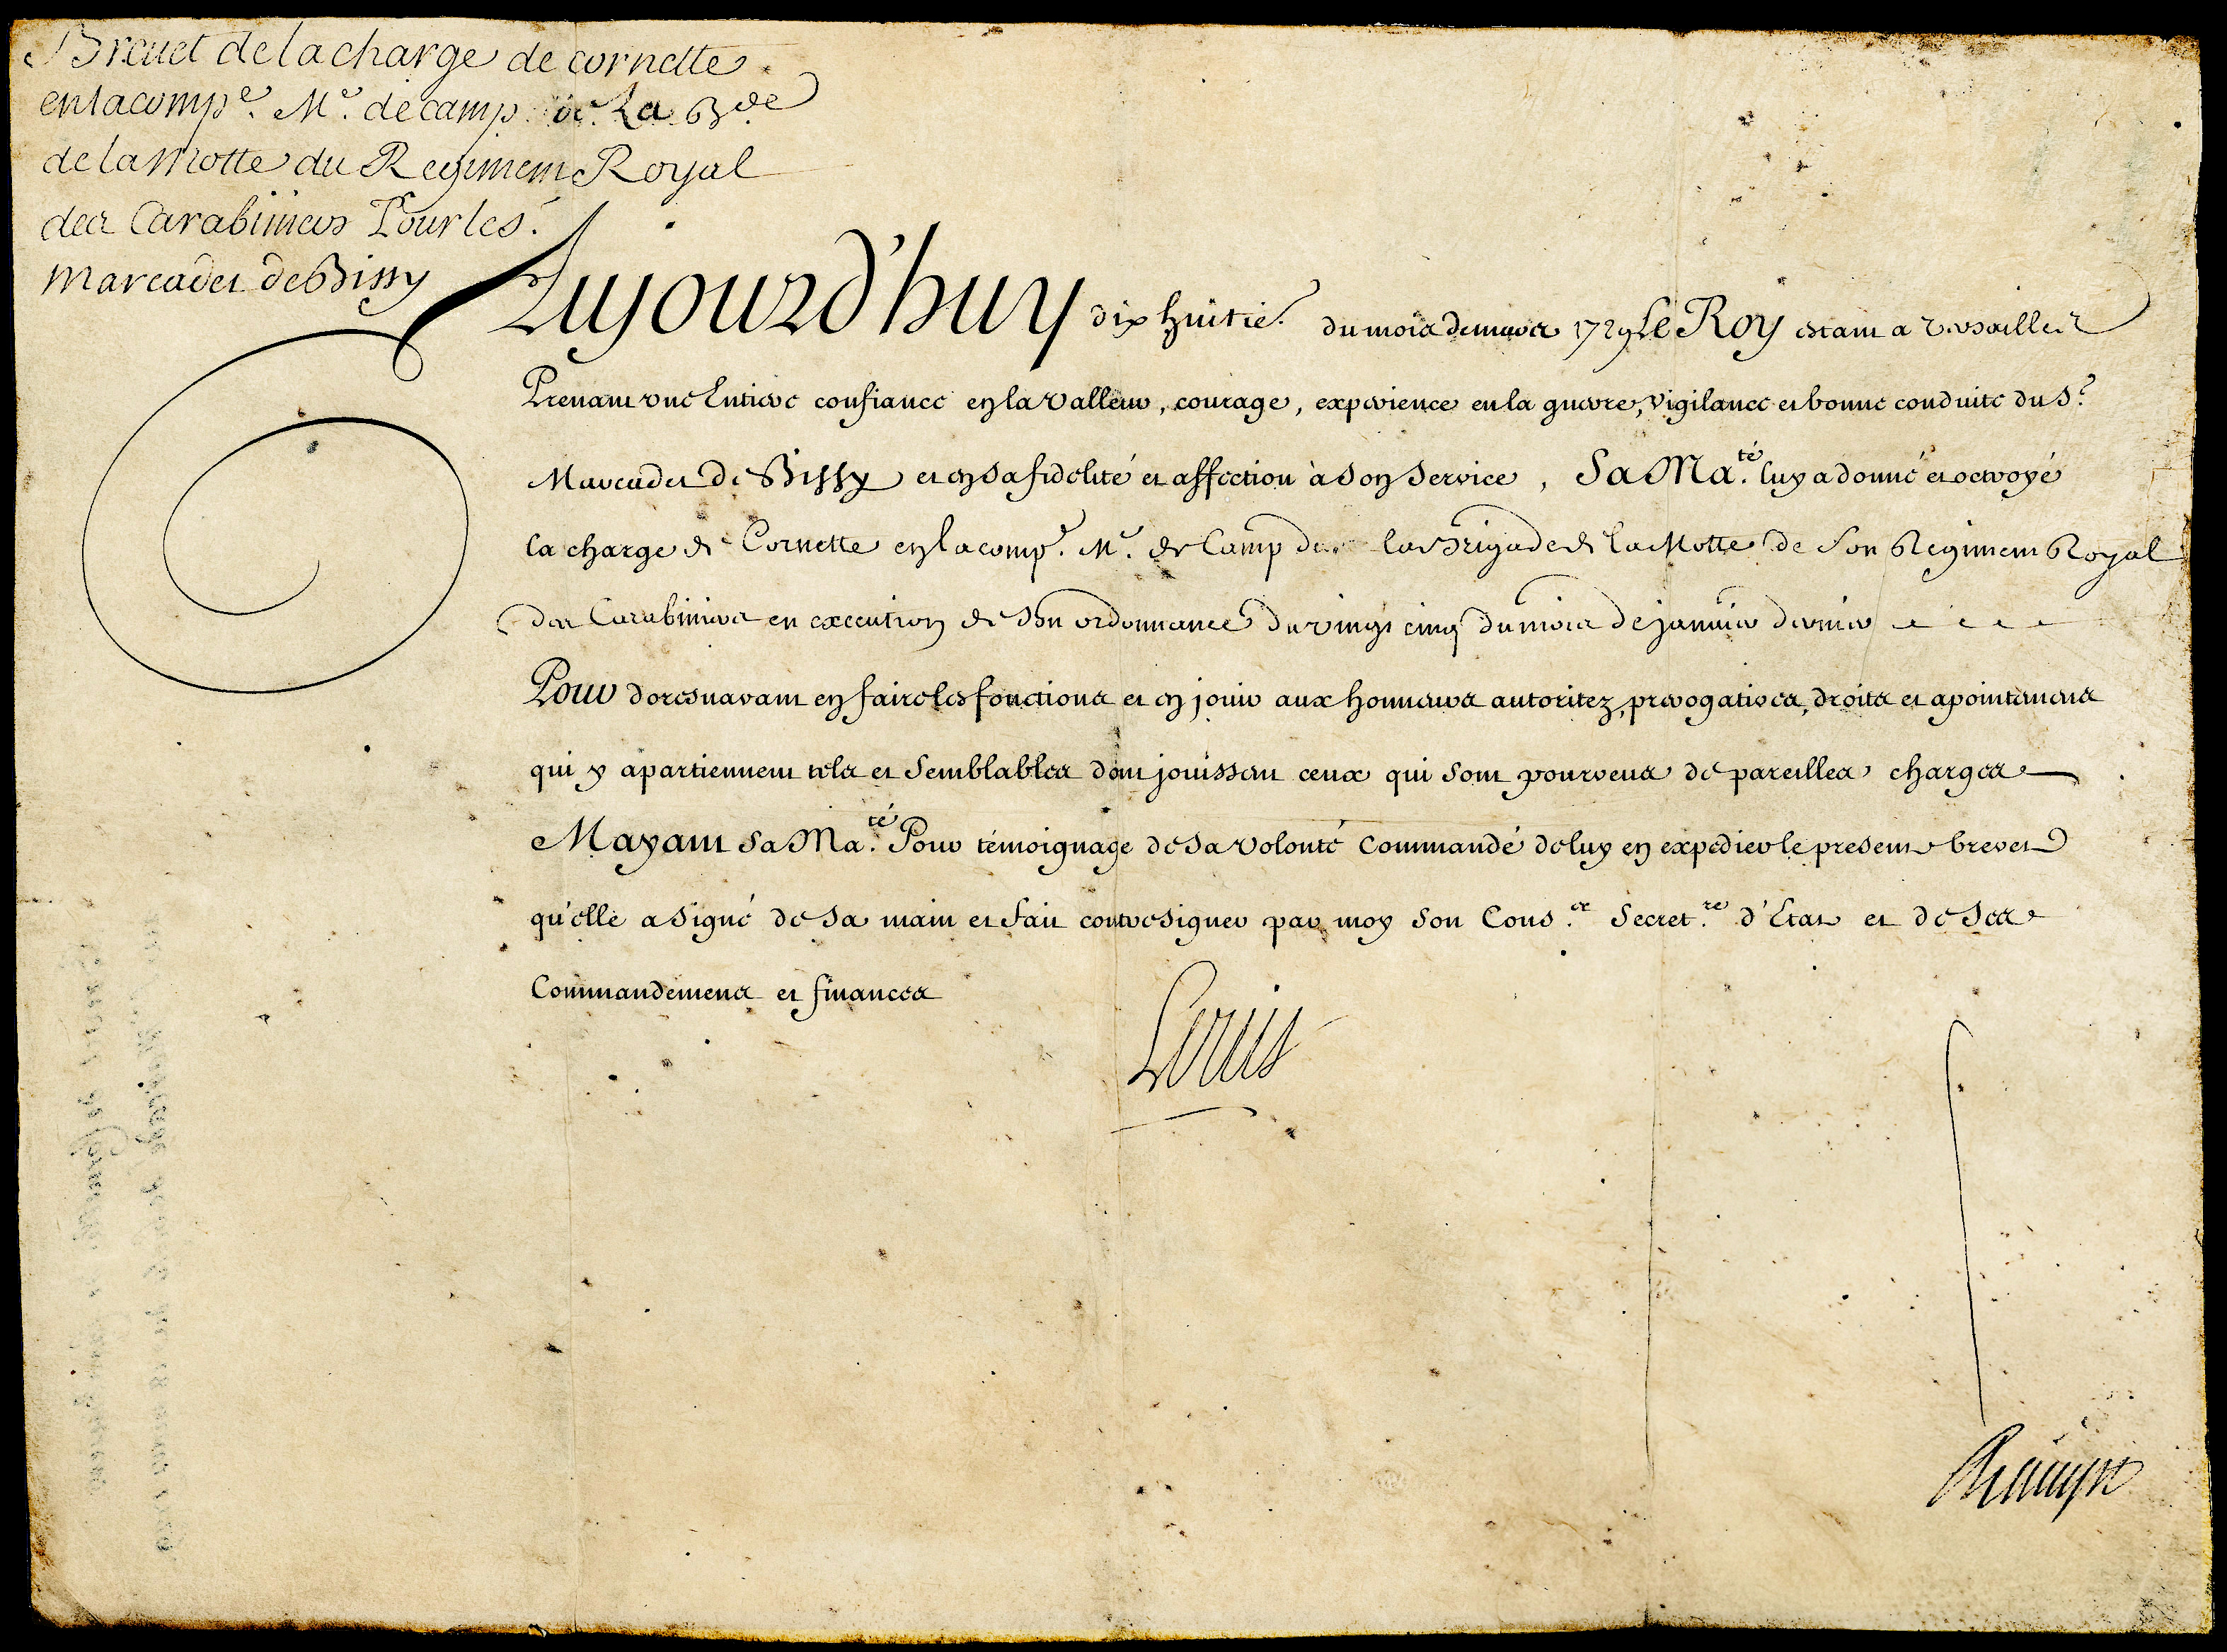 Brevet de la charge de cornette
en la compe. Me. de camp de La Bde
de la Motte du Regiment Royal
des Carabiniers Pour le s.
Marcadet de Bissy
Aujourd'huy dix huitie. du mois de mars 1729 Le Roy estant a Versailles
Prenant une Entiere confiance en la valleur, courage, experience en la guerre, vigilance et bonne conduite du Sr.
Marcadet de Bissy et en sa fidelité et affection à son service, Sa Ma.té luy a donné et octroyé
la charge de Cornette en la compe. Me. de Camp de la Brigade de la Motte de son Regiment Royal
des Carabiniers en execution de son ordonnance du vingt cinq du mois de janvier dernier
Pour doresnavant en faire les fonctions et en jouir aux honneurs autoritez, prerogatives, droits et apointemens
qui y apartiennent tels et semblables dont jouissent ceux qui sont pourveus de pareilles charges
M'ayant Sa Ma.té Pour témoignage de sa volonté commandé de luy en expedier le present brevet
qu'elle a signé de sa main et fait contresigner par moy son Cons.er Secret.re d'Etat et de ses
Commandemens et finances
Louis